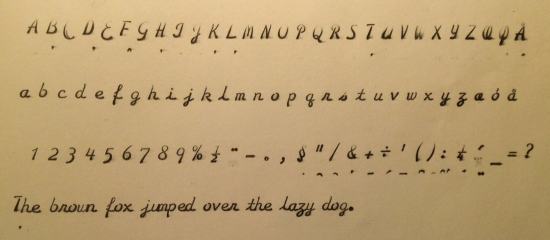 A B C D E F G H I J K L M N O P Q R S T U V W X Y Z Å
a b c d e f g h i j k l m n o p q r s t u v w x y z å
1 2 3 4 5 6 7 8 9 % ½ ¨ - . , § " / & + ÷ ' ( ) : ¼ ´ _ = ?
The broun fox jumped over the lazy dog.